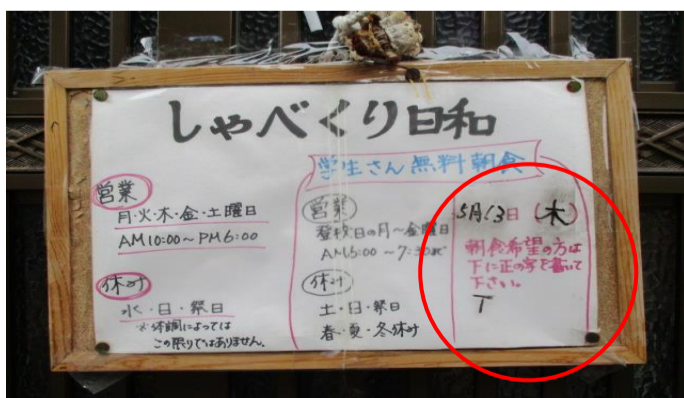 しゃべくり日和
学生さん無料朝食
営業
月・火・木・金・土曜日
AM10:00～PM6:00
休み
水・日・祭日
※体調によっては
この限りではありません。
営業
登校日の月～金曜日
AM5:00～7:30まで
休み
土・日・祭日
春・夏・冬休み
5月13日(木)
朝食希望の方は
下に正の字を書いて
下さい。
丅